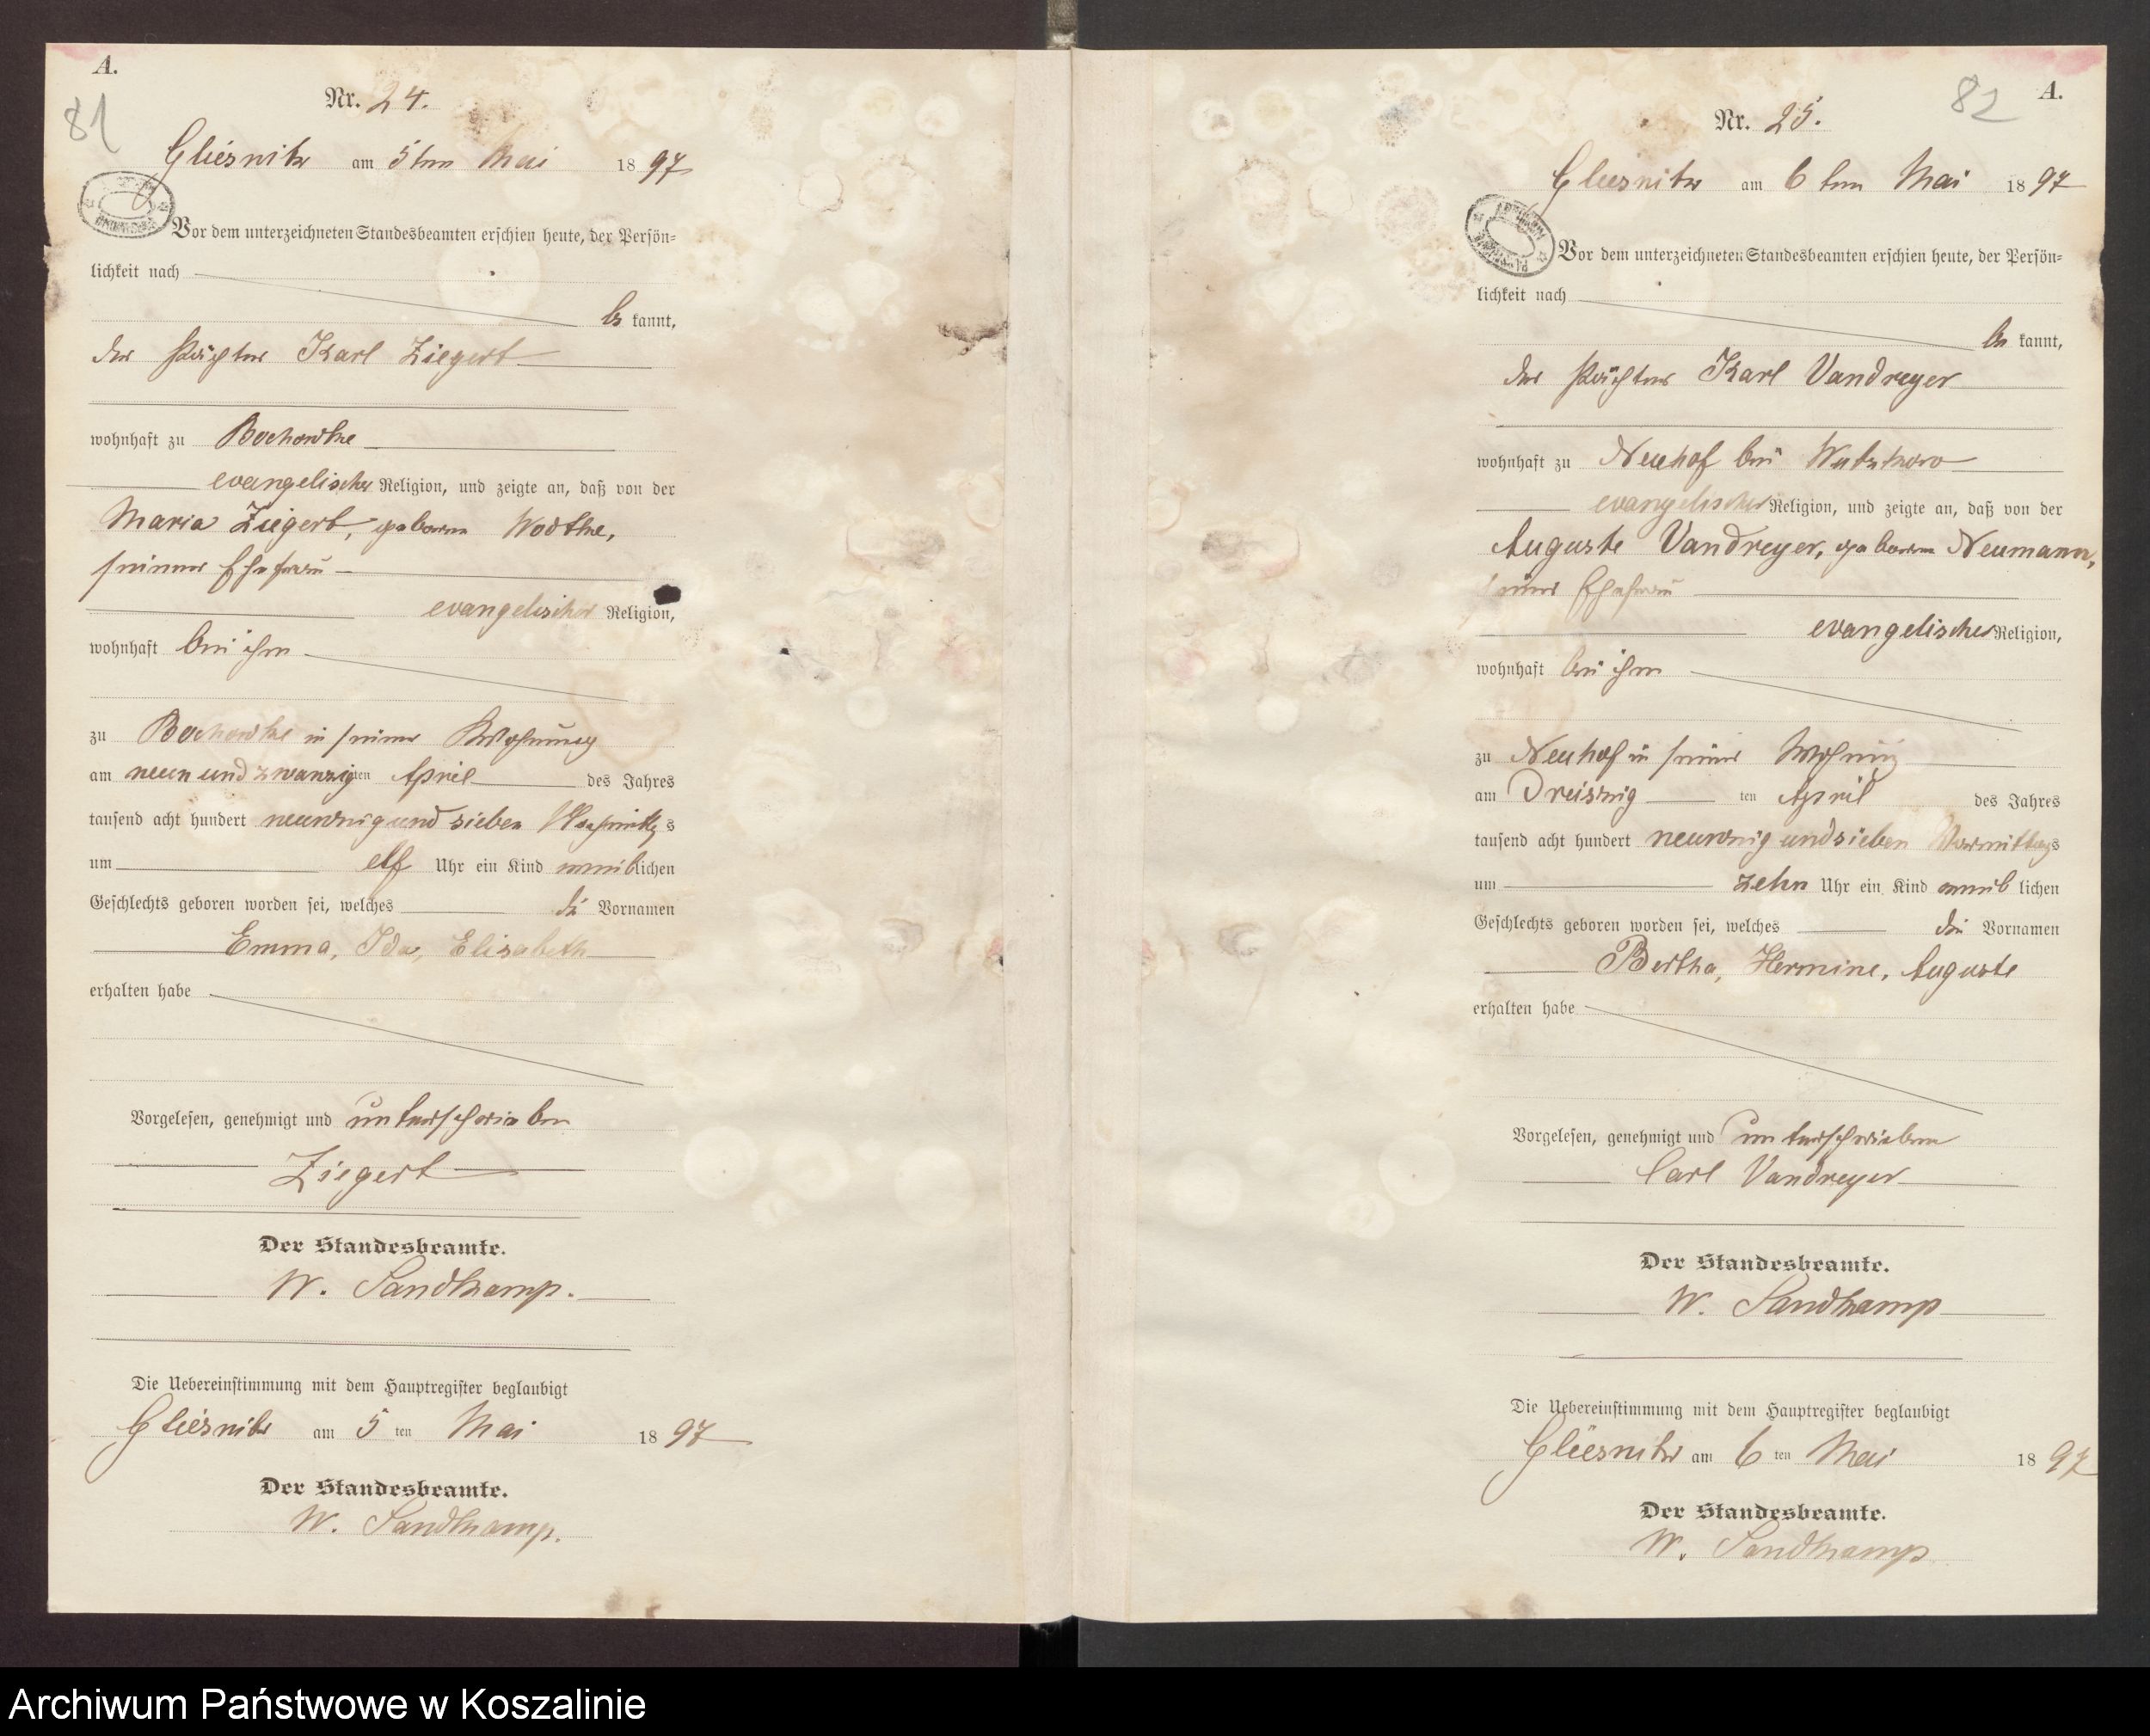 A.
81
Nr. 24.
Gliesnitz am 5ten Mai 1897
Vor dem unterzeichneten Standesbeamten erschien heute, der Persön=
lichkeit nach
be kannt,
der Pächter Karl Ziegert
wohnhaft zu Bochowke
evangelischer Religion, und zeigte an, daß von der
Maria Ziegert, geborene Wodtke,
seiner Ehefrau
evangelischer Religion,
wohnhaft bei ihm
zu Bochowke in seiner Wohnung
am neun und zwanzigten April des Jahres
tausend acht hundert neunzig und sieben Nachmittags
um elf Uhr ein Kind weiblichen
Geschlechts geboren worden sei, welches die Vornamen
Emma, Ida, Elisabeth
erhalten habe
Vorgelesen, genehmigt und unterschrieben
Ziegert
Der Standesbeamte.
W. Sandkamp.
Die Uebereinstimmung mit dem Hauptregister beglaubigt
Gliesnitz am 5 ten Mai 1897
Der Standesbeamte.
W. Sandkamp.
82
A.
Nr. 25.
Gliesnitz am 6ten Mai 1897
Vor dem unterzeichneten Standesbeamten erschien heute, der Persön=
lichkeit nach
be kannt,
der Pächter Karl Vandreyer
wohnhaft zu Neuhof bei Wutzkow
evangelischer Religion, und zeigte an, daß von der
Auguste Vandreyer, geborene Neumann,
seiner Ehefrau
evangelischer Religion,
wohnhaft bei ihm
zu Neuhof in seiner Wohnung
am Dreiszig ten April des Jahres
tausend acht hundert neunzig und sieben Vormittags
um zehn Uhr ein Kind weib lichen
Geschlechts geboren worden sei, welches die Vornamen
Bertha, Hermine, Auguste
erhalten habe
Vorgelesen, genehmigt und unterschrieben
Carl Vandreyer
Der Standesbeamte.
W. Sandkamp
Die Uebereinstimmung mit dem Hauptregister beglaubigt
Gliesnitz am 6 ten Mai 1897
Der Standesbeamte.
W. Sandkamp
Archiwum Państwowe w Koszalinie